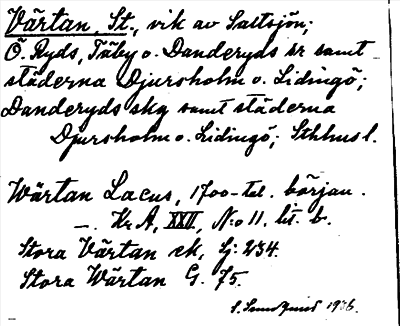 Värtan, St., vik av Saltsjön;
Ö. Ryds, Täby o. Danderyds sr samt
städerna Djursholm o. Lidingö;
Danderyds skg samt städerna
Djursholm o. Lidingö; Sthlms l.
Wärtan Lacus, 1700-tal. början.
—. Kr A, XXII, N:o 11. lit. b.
Stora Värtan ek, Sj: 234.
Stora Wärtan G. 75.
1936.